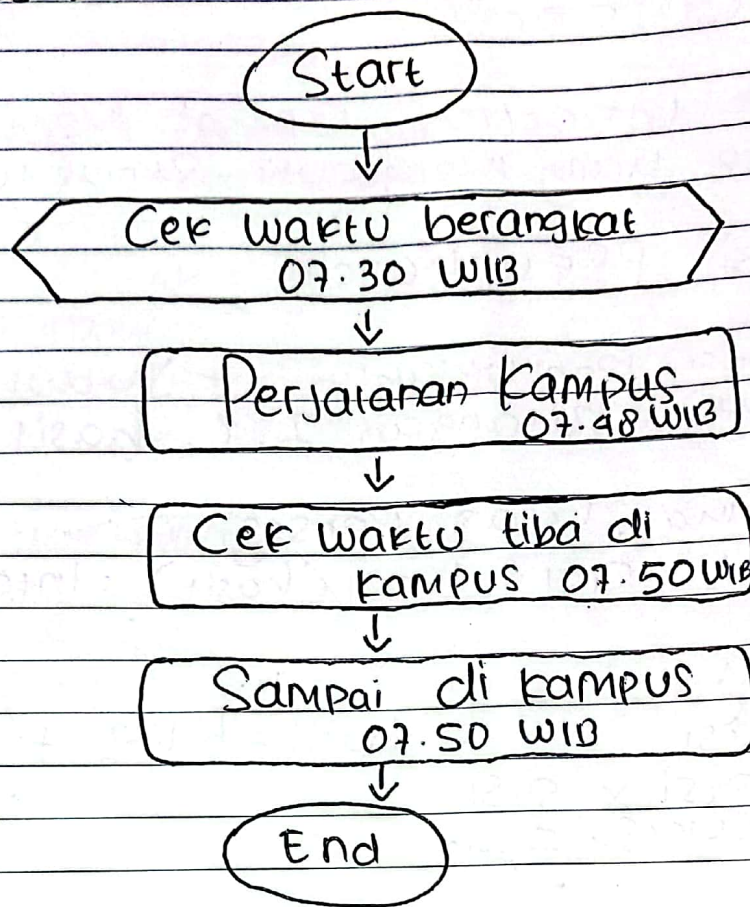 Start
Cek waktu berangkat
07.30 WIB
Perjalanan Kampus
07.48 WIB
Cek waktu tiba di
kampus 07.50 WIB
Sampai di kampus
07.50 WIB
End